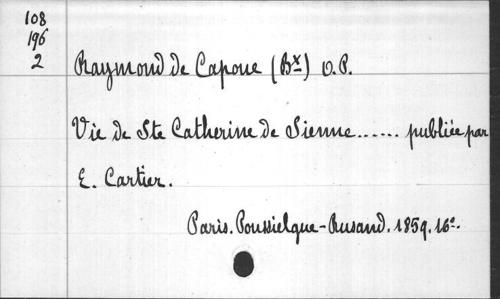 108
196
2
Raymond de Capoue (Bx) O.P.
Vie de Ste Catherine de Sienne...... publiée par
E. Cartier.
Paris. Poussielgue-Rusand. 1859. 16º.